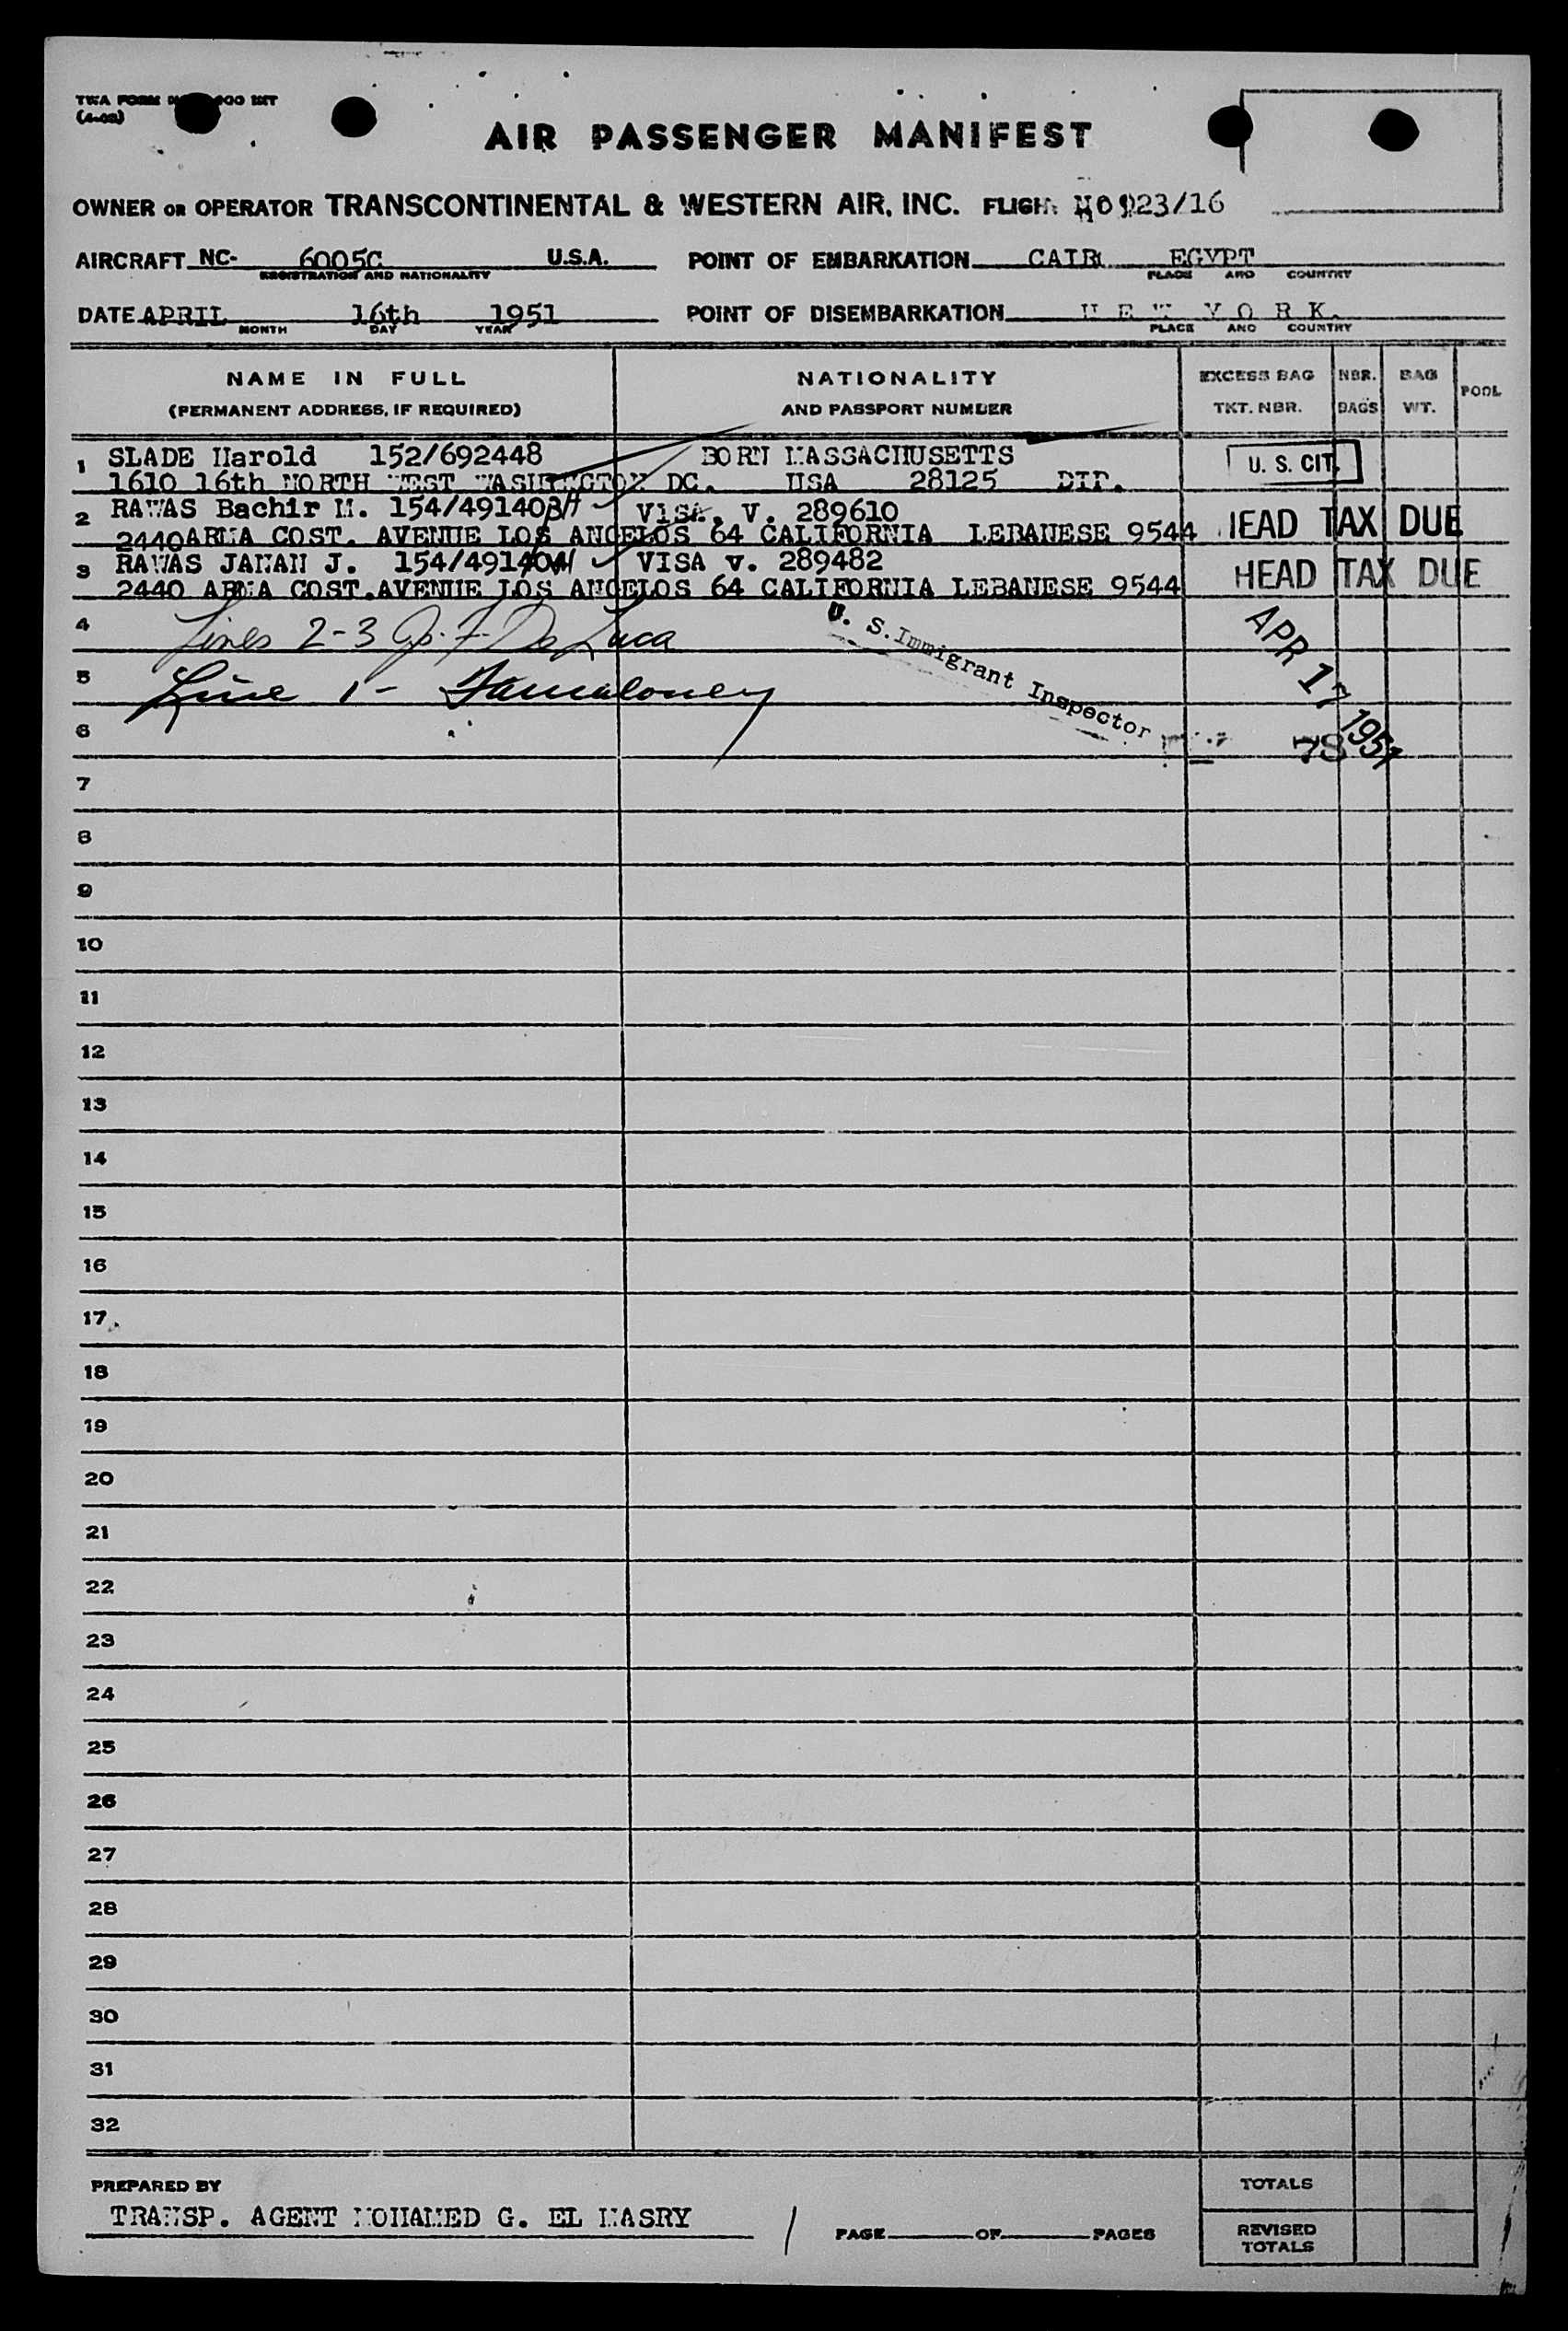 TWA FORM 900 INT
AIR PASSENGER MANIFEST
OWNER OR OPERATOR TRANSCONTINENTAL & WESTERN AIR, INC. FLIGHT 923/16
AIRCRAFT NC- 6005C U.S.A. POINT OF EMBARKATION CAIRO EGYPT
REGISTRATION AND NATIONALITY PLACE AND COUNTRY
DATE APRIL 16th 1951 POINT OF DISEMBARKATION N E W Y O R K.
MONTH DAY YEAR PLACE AND COUNTRY
NAME IN FULL NATIONALITY EXCESS BAG NBR. BAG POOL
(PERMANENT ADDRESS, IF REQUIRED) AND PASSPORT NUMBER TKT. NBR. BAGS WT.
1 SLADE Harold 152/692448 BORN MASSACHUSETTS U. S. CIT.
1610 16th NORTH WEST WASHINGTON DC. USA 28125 DIP.
2 RAWAS Bachir M. 154/491403 VISA. V. 289610 HEAD TAX DUE
2440 COST. AVENUE LOS ANGELOS 64 CALIFORNIA LEBANESE 9544
3 RAWAS JANAN J. 154/491404 VISA v. 289482 HEAD TAX DUE
2440 COST.AVENUE LOS ANGELOS 64 CALIFORNIA LEBANESE 9544
4 Lines 2-3 De Luca U. S. Immigrant Inspector APR 17 1951
5 Line 1 -
6 78
7
8
9
10
11
12
13
14
15
16
17
18
19
20
21
22
23
24
25
26
27
28
29
30
31
32
PREPARED BY TOTALS
TRANSP. AGENT MOHAMED G. EL MASRY / PAGE OF PAGES REVISED TOTALS